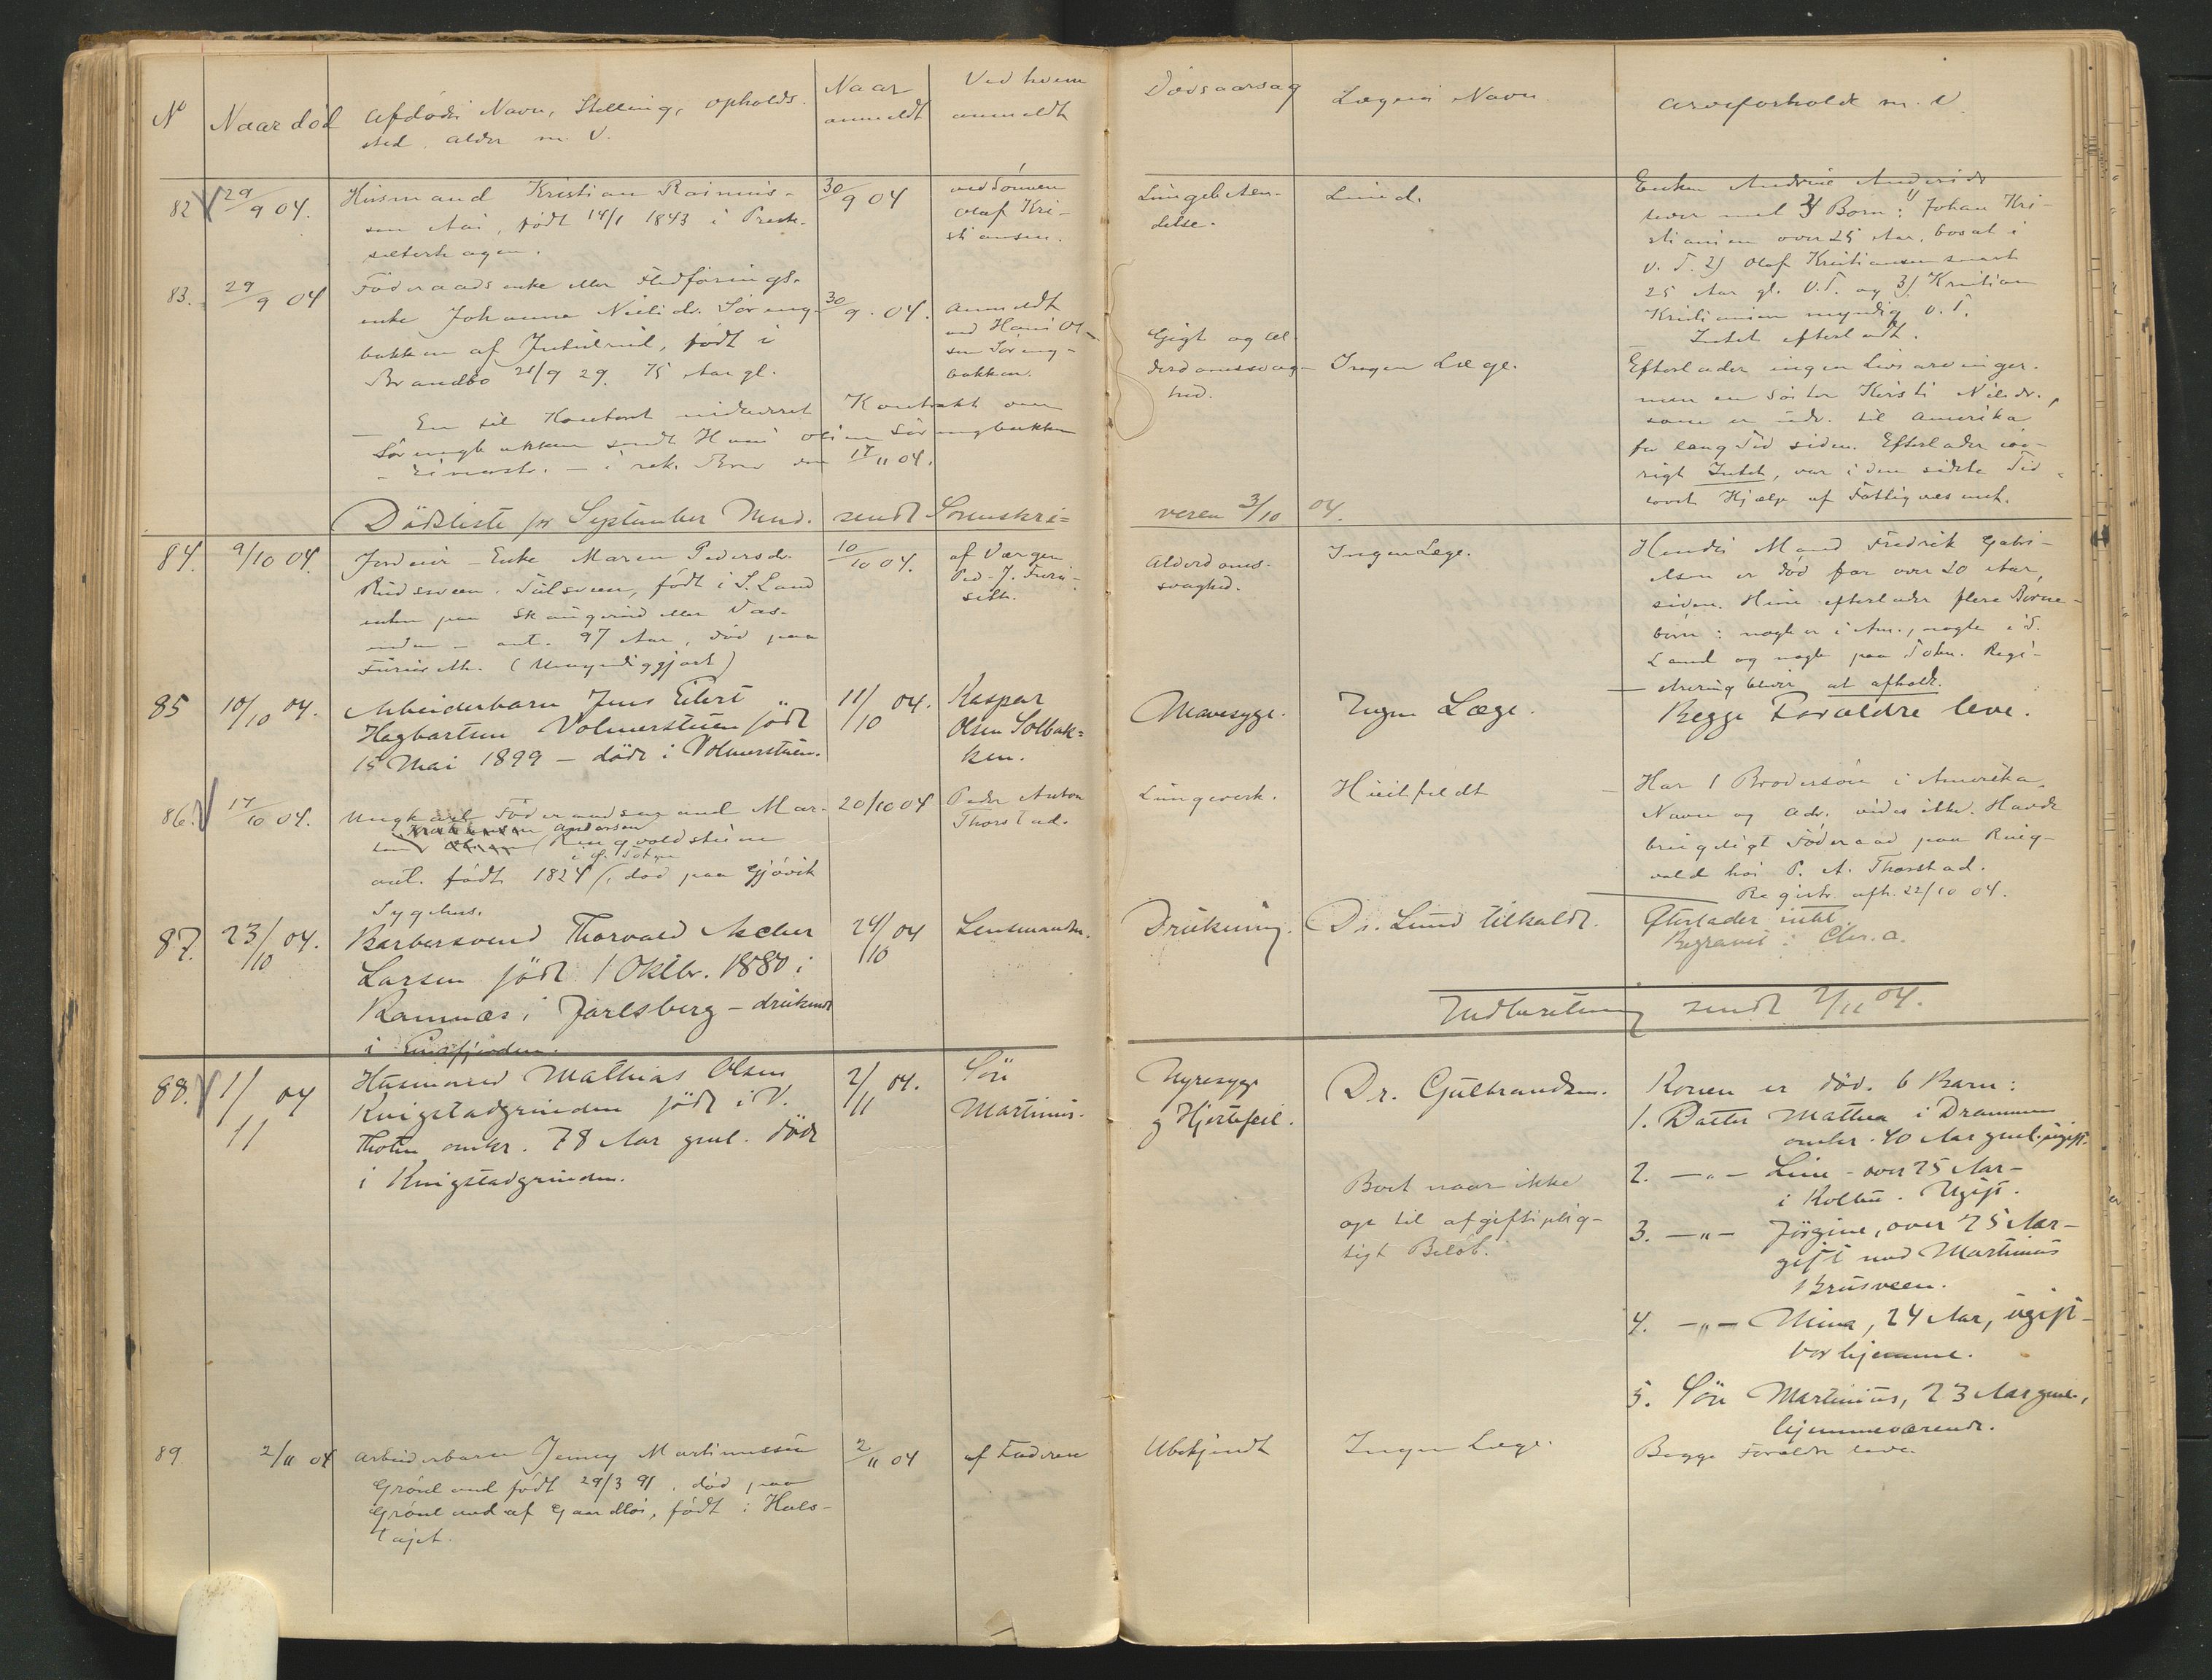 No
Naar död
Afdödes Navn, Stilling, opholds-
sted, alder m. V.
Naar
anmeldt
Ved hvem
anmeldt
Dødsaarsag
Lægens Navn.
Arveforholde m. V.
82
29/9 04.
Husmand Kristian Rasmus-
sen Aas, födt 14/1 1843 i Prest-
sæterhagen.
30/9 04
ved Sönnen
Olaf Kri-
stiansen.
Lungebetæn-
delse.
Lund.
Enken Andrine Andersdr
lever med 3 Born: 1) Johan Kri-
stiansen over 25 Aar, bosat i
V. T. 2) Olaf Kristiansen snart
25 Aar gl. V.T. og 3) Kristian
Kristiansen myndig V. T.
Intet efterladt.
83.
29/9 04
Föderaadsenke eller Fledförings-
enke Johanne Nielsdr. Söreng-
bakken af, födt i
Brandbo 28/9 29. 75 Aar gl.
30/9. 04.
Anmeldt
ved Hans Ol-
sen Söreng-
bakken.
Gigt og al-
derdomssvag-
hed.
Ingen Læge.
Efterlader ingen Livsarvinger.
men en Söster Kirsti Nilsdr.,
som er udr. til Amerika
for lang Tid siden. Efterlader iöv-
rigt Intet, var i den sidste Tid
lovet Hjælp af Fattigvæsenet.
— En til Kontoret indleveret Kontrakt om
Sörengbakken sendt Hans Olsen Sörengbakken
Einastr. — i rek. Brev den 17/11 04.
Dödsliste for September Mnd. sendt Sorenskri=
veren 3/10 04.
84.
9/10 04.
Jordeier-Enke Maren Pedersdr.
Rudsveen, födt i S. Land
enten paa Skangerud eller Vas-
enden – ant. 97 Aar, död paa
Furuseth. (Umyndiggjort)
10/10 04.
af Værgen
Ped. J. Furu-
seth.
Alderdoms-
svaghed.
Ingen Læge.
Hendes Mand Fredrik Gabri-
elsen er död for over 20 Aar
siden. Hun efterlader flere Börne-
börn: nogle er i Am., nogle i S.
Land og nogle paa Toten. Regi-
strering bliver at afholde.
85
10/10 04.
Arbeiderbarn Jens Eilert
Hagbartsen Volmerstuen födt
15 Mai 1899 – döde i Volmerstuen.
11/10 04.
Kaspar
Olsen Solbak=
ken.
Mavesyge.
Ingen Læge.
Begge Forældre leve.
86.
17/10 04.
Ungkarl Föderaadsmand Mar-
Andersen
Ringvoldstuen
i Ø. Toten
ant. födt 1824, död paa Gjövik
Sygehus.
20/10 04
Peder Anton
Thorstad.
Lungeverk.
Huitfeldt
Har 1 Brodersön i Amerika
Navn og Adr. vides ikke. Havde
tinglyst Föderaad paa Ring-
vold hos P. A. Thorstad.
Registr. afh. 22/10 04.
87.
23/10 04.
Barbersvend Thorvald Ascher
Larsen födt 1 Oktbr. 1880 i
Ramnæs i Jarlsberg – druknet
i Einafjorden.
24/10 04
Lensmanden.
Drukning.
Dr. Lund tilkaldt.
Efterlader intet.
Begraves i Chr.a.
Indberetning sendt 2/11 04.
88.
1/11 04
Husmand Mathias Olsen
Kvigstadgrinden födt i V.
Thoten omkr. 78 Aar gml. döde
i Kvigstadgrinden.
2/11 04.
Sön
Martinus.
Nyresyge
og Hjertefeil.
Dr. Gulbrandsen.
Boet naar ikke
op til afgiftsplig-
tigt Belöb.
Konen er död. 6 Barn:
1. Datter Mathea i Drammen
omkr. 40 Aar gml. ugift.
2. —„— Line – over 25 Aar –
i Kolbu. Ugift.
3. —„— Jörgine, over 25 Aar –
gift med Martinus
Brusveen.
4. —„— Mina, 24 Aar, ugift –
bor hjemme.
5. Sön Martinus, 23 Aar gml.,
hjemmeværende.
89.
2/11 04
Arbeiderbarn Jenny Martinussen
Grönlund födt 29/3 91, död paa
Grönlund af Gaardlös, födt i Hals-
tajet.
2/11 04
af Faderen
Ubekjendt
Ingen Læge.
Begge Forældre lever.